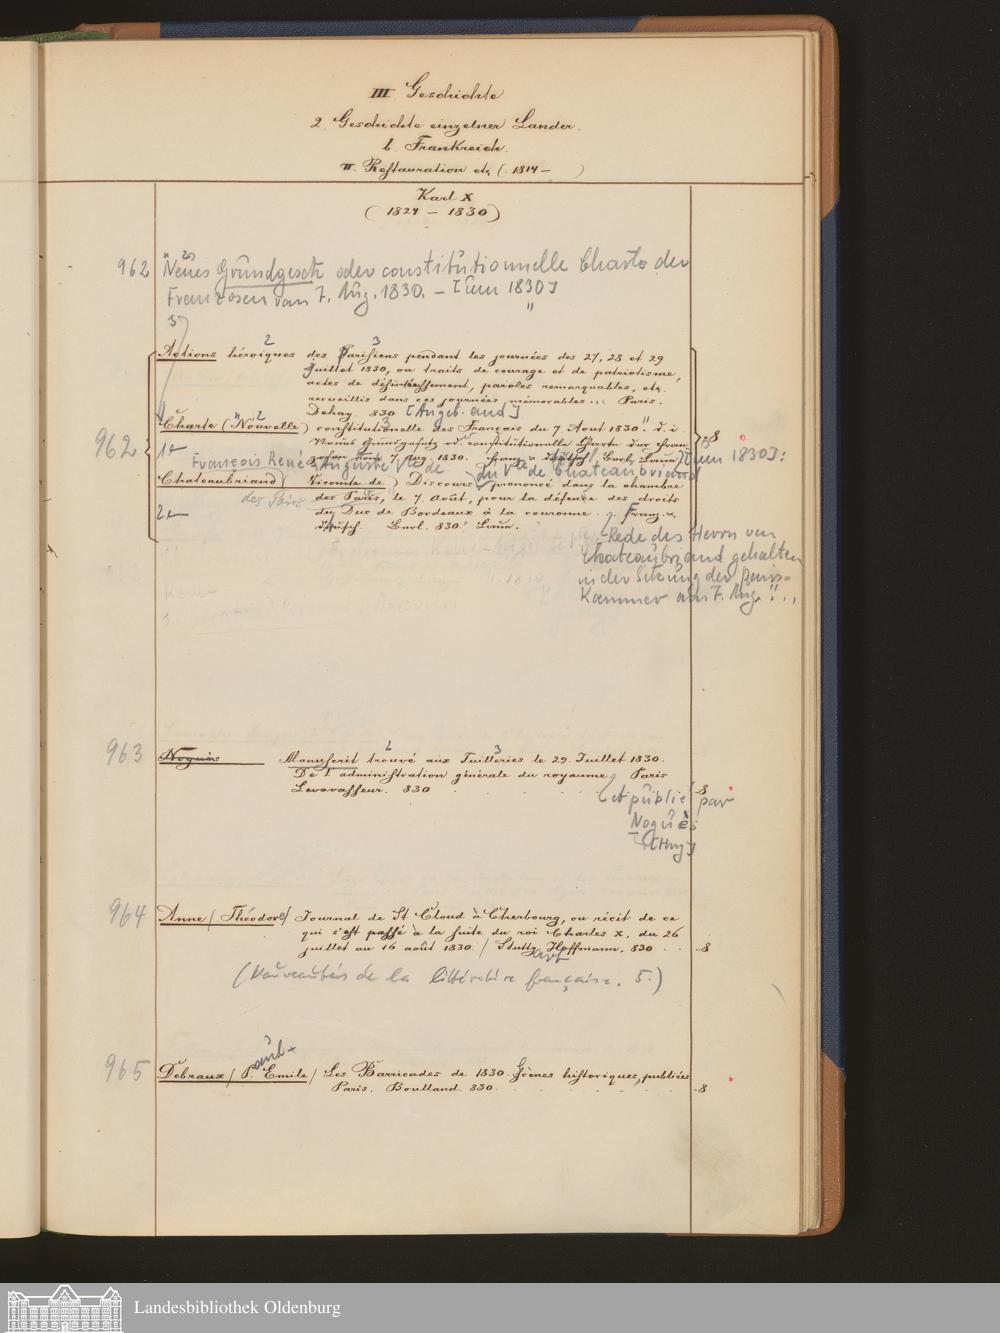 III. Geschichte
2. Geschichte einzelner Länder.
b. Frankreich.
II. Restauration etc. (1814 — )
Karl X
(1824 — 1830)
962 Neues Grundgesetz oder constitutionnelle Charte der
Franzosen vom 7. Aug. 1830. — [um 1830]
3)
Actions héroiques des Parisiens pendant les journées des 27, 28 et 29
juillet 1830, ou traits de courage et de patriotisme,
actes de désintéressement, paroles remarquables, etc.
recueillis dans ces journées mémorables... Paris.
Dehay. 830 [Angeb. and]
Charte (Nouvelle) constitutionelle des Français du 7. Aout 1830. d. i.
962 1 Neues Grundgesetz od. constitutionelle Charte der Fran
zosen vom 7. Aug. 1830. franz. u. deutsch. Berl. [um 1830]:
François René Auguste Vte de du Vte de Chateaubriand
Chateaubriand (Vicomte de) Discours prononcé dans la chambre
des Pairs, le 7. Août, pour la défense des droits
2 du Duc de Bordeaux à la couronne. Franz. u.
deutsch. Berl. 830.
Rede des Herrn von
Chateaubriand gehalten
in der Sitzung der Pairs-
Kammer am 7. Aug.
963 Noguès Manuscrit trouvé aux Tuilleries le 29. Juillet 1830.
De l'administration générale du royaume. Paris
Levavasseur. 830 8
(et publié par
Noguès
964 Anne (Théodore) Journal de St Cloud à Cherbourg, ou récit de ce
qui s'est passé à la suite du roi Charles X, du 26
juillet au 16 août 1830. / Stuttgart Hoffmann. 830 8
(Nouveautés de la littérature française. 5.)
965 Debraux / P. Emile / Les Barricades de 1830. Scènes historiques, publiées
Paris. Boulland 830. 8
Landesbibliothek Oldenburg